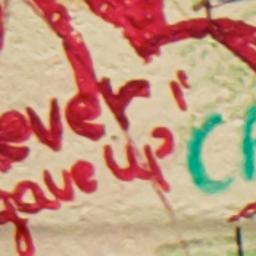 ever"
gave up
CA